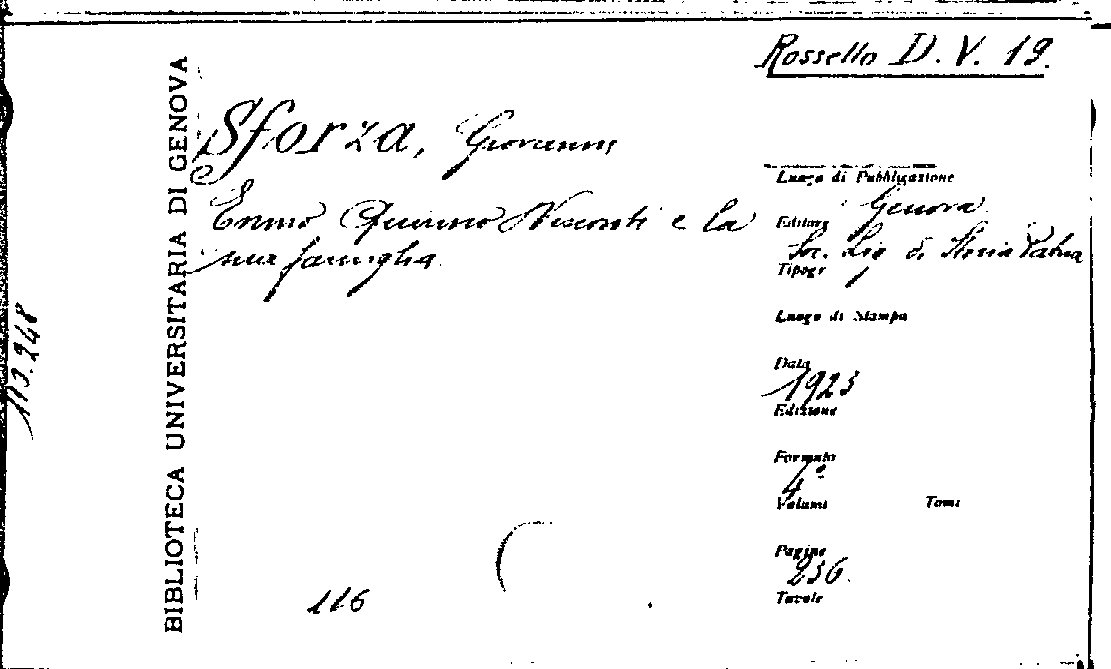 Rossello D. V. 19.
BIBLIOTECA UNIVERSITARIA DI GENOVA
Sforza, Giovanni
Ennio Quirino Visconti e la
sua famiglia.
Luogo di Pubblicazione
Genova
Editore
Soc. Lig. di Storia Patria
Tipogr
Luogo di Stampa
Data
1923
Edizione
Formato
4°
Volumi Tomi
Pagine
236.
Tavole
113.248
116